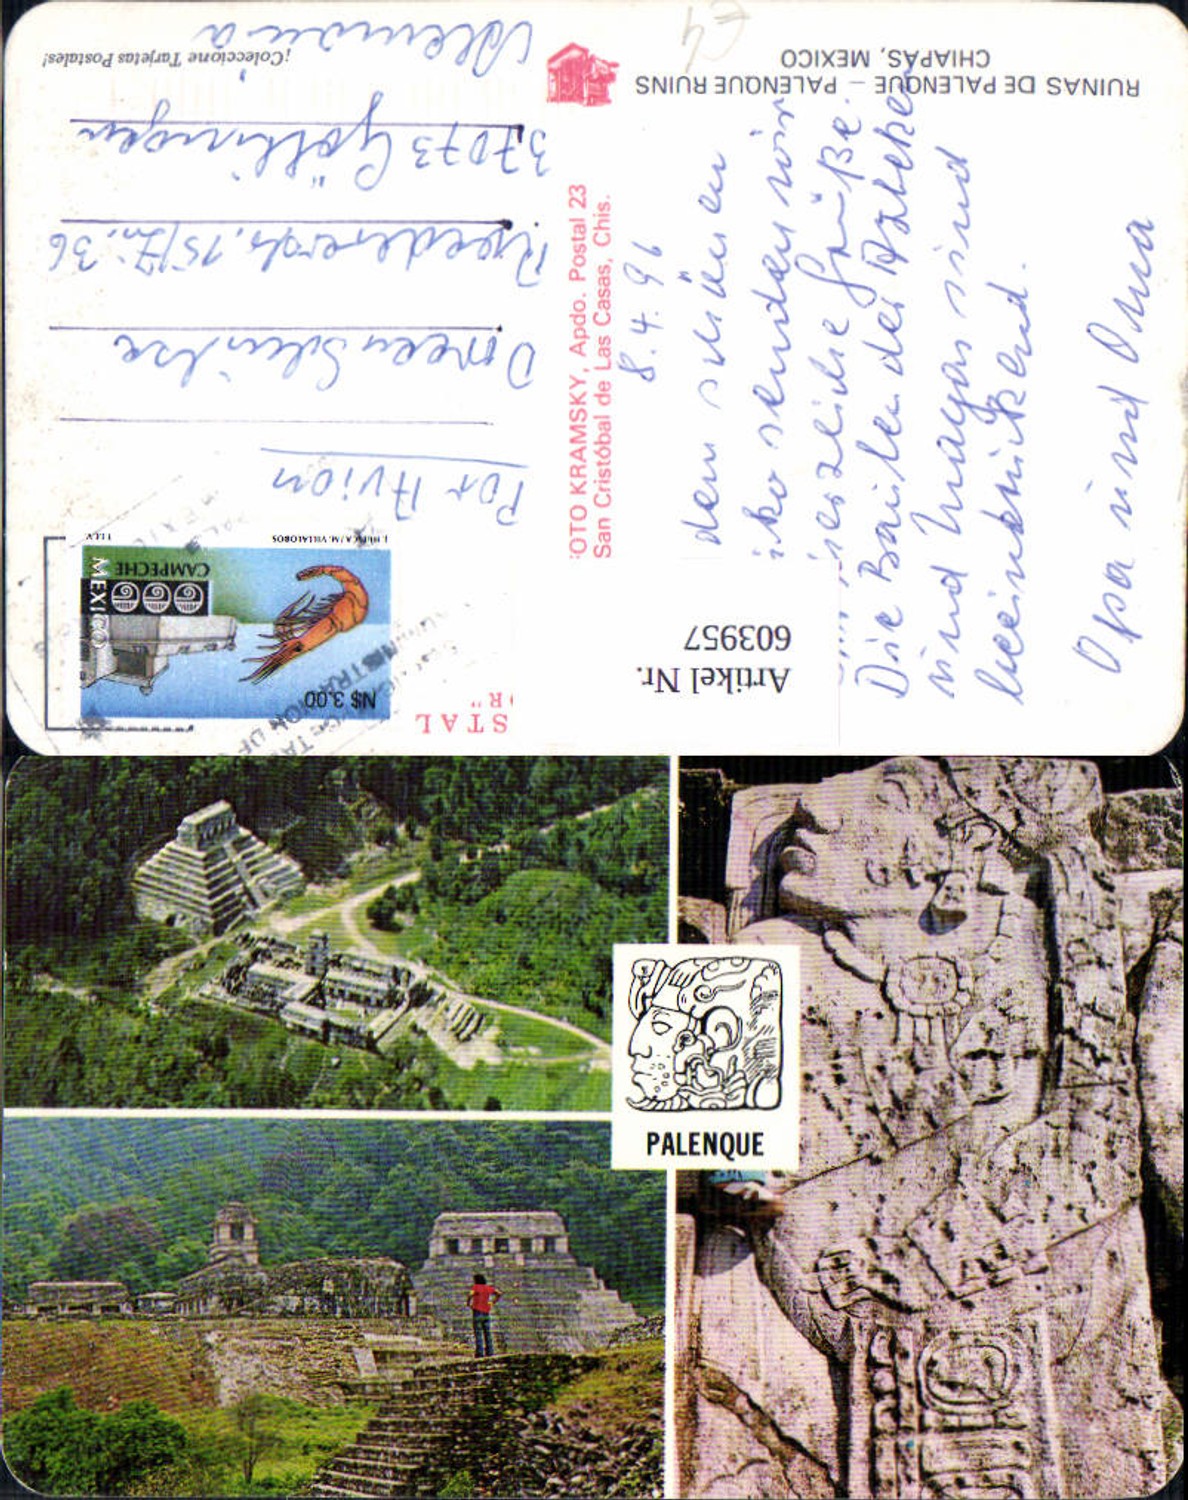 RUINAS DE PALENQUE – PALENQUE RUINS
CHIAPAS, MEXICO
8.4.96
den schönen
iko senden wir
herzliche Grüße.
Die Bauten der Azteken
und Mayas sind
beeindruckend.
Opa und Oma
Artikel Nr.
603957
OTO KRAMSKY, Apdo. Postal 23
San Cristóbal de Las Casas, Chis.
STAL
R"
N$ 3.00
MEXICO
CAMPECHE
J. HUNCA/M. VILLALOBOS
T.I.E.V.
Por Avion
Schulze
37073 Göttingen
¡Coleccione Tarjetas Postales!
PALENQUE